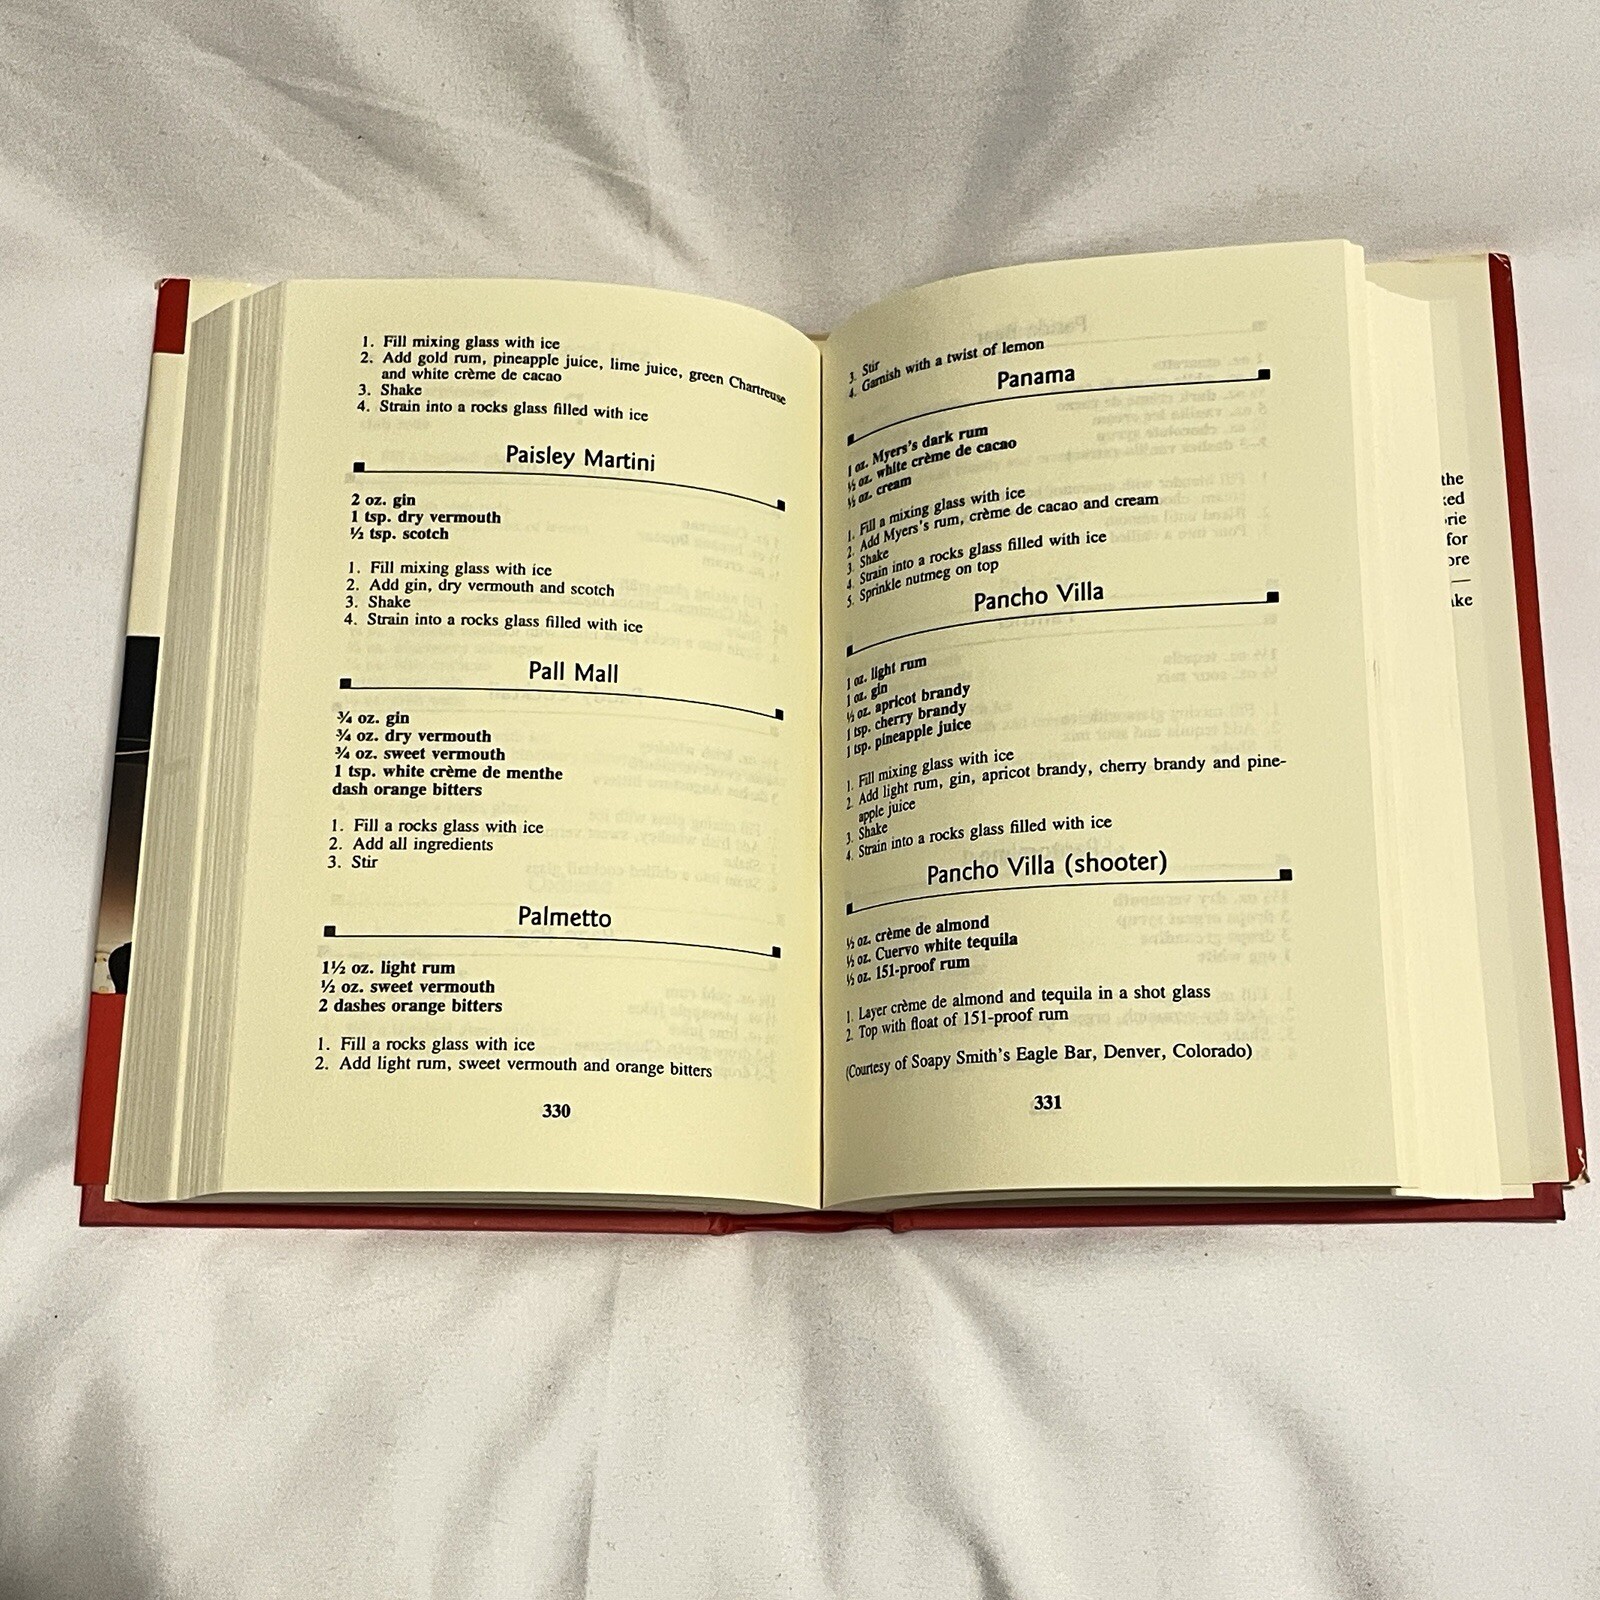 1. Fill mixing glass with ice
2. Add gold rum, pineapple juice, lime juice, green Chartreuse
and white crème de cacao
3. Shake
4. Strain into a rocks glass filled with ice
Paisley Martini
2 oz. gin
1 tsp. dry vermouth
½ tsp. scotch
1. Fill mixing glass with ice
2. Add gin, dry vermouth and scotch
3. Shake
4. Strain into a rocks glass filled with ice
Pall Mall
¾ oz. gin
¾ oz. dry vermouth
¾ oz. sweet vermouth
1 tsp. white crème de menthe
dash orange bitters
1. Fill a rocks glass with ice
2. Add all ingredients
3. Stir
Palmetto
1½ oz. light rum
½ oz. sweet vermouth
2 dashes orange bitters
1. Fill a rocks glass with ice
2. Add light rum, sweet vermouth and orange bitters
330
3. Stir
4. Garnish with a twist of lemon
Panama
1 oz. Myers's dark rum
½ oz. white crème de cacao
½ oz. cream
1. Fill a mixing glass with ice
2. Add Myers's rum, crème de cacao and cream
3. Shake
4. Strain into a rocks glass filled with ice
5. Sprinkle nutmeg on top
Pancho Villa
1 oz. light rum
1 oz. gin
½ oz. apricot brandy
1 tsp. cherry brandy
1 tsp. pineapple juice
1. Fill mixing glass with ice
2. Add light rum, gin, apricot brandy, cherry brandy and pine-
apple juice
3. Shake
4. Strain into a rocks glass filled with ice
Pancho Villa (shooter)
oz. crème de almond
oz. Cuervo white tequila
oz. 151-proof rum
1. Layer crème de almond and tequila in a shot glass
2. Top with float of 151-proof rum
(Courtesy of Soapy Smith's Eagle Bar, Denver, Colorado)
331
the
for